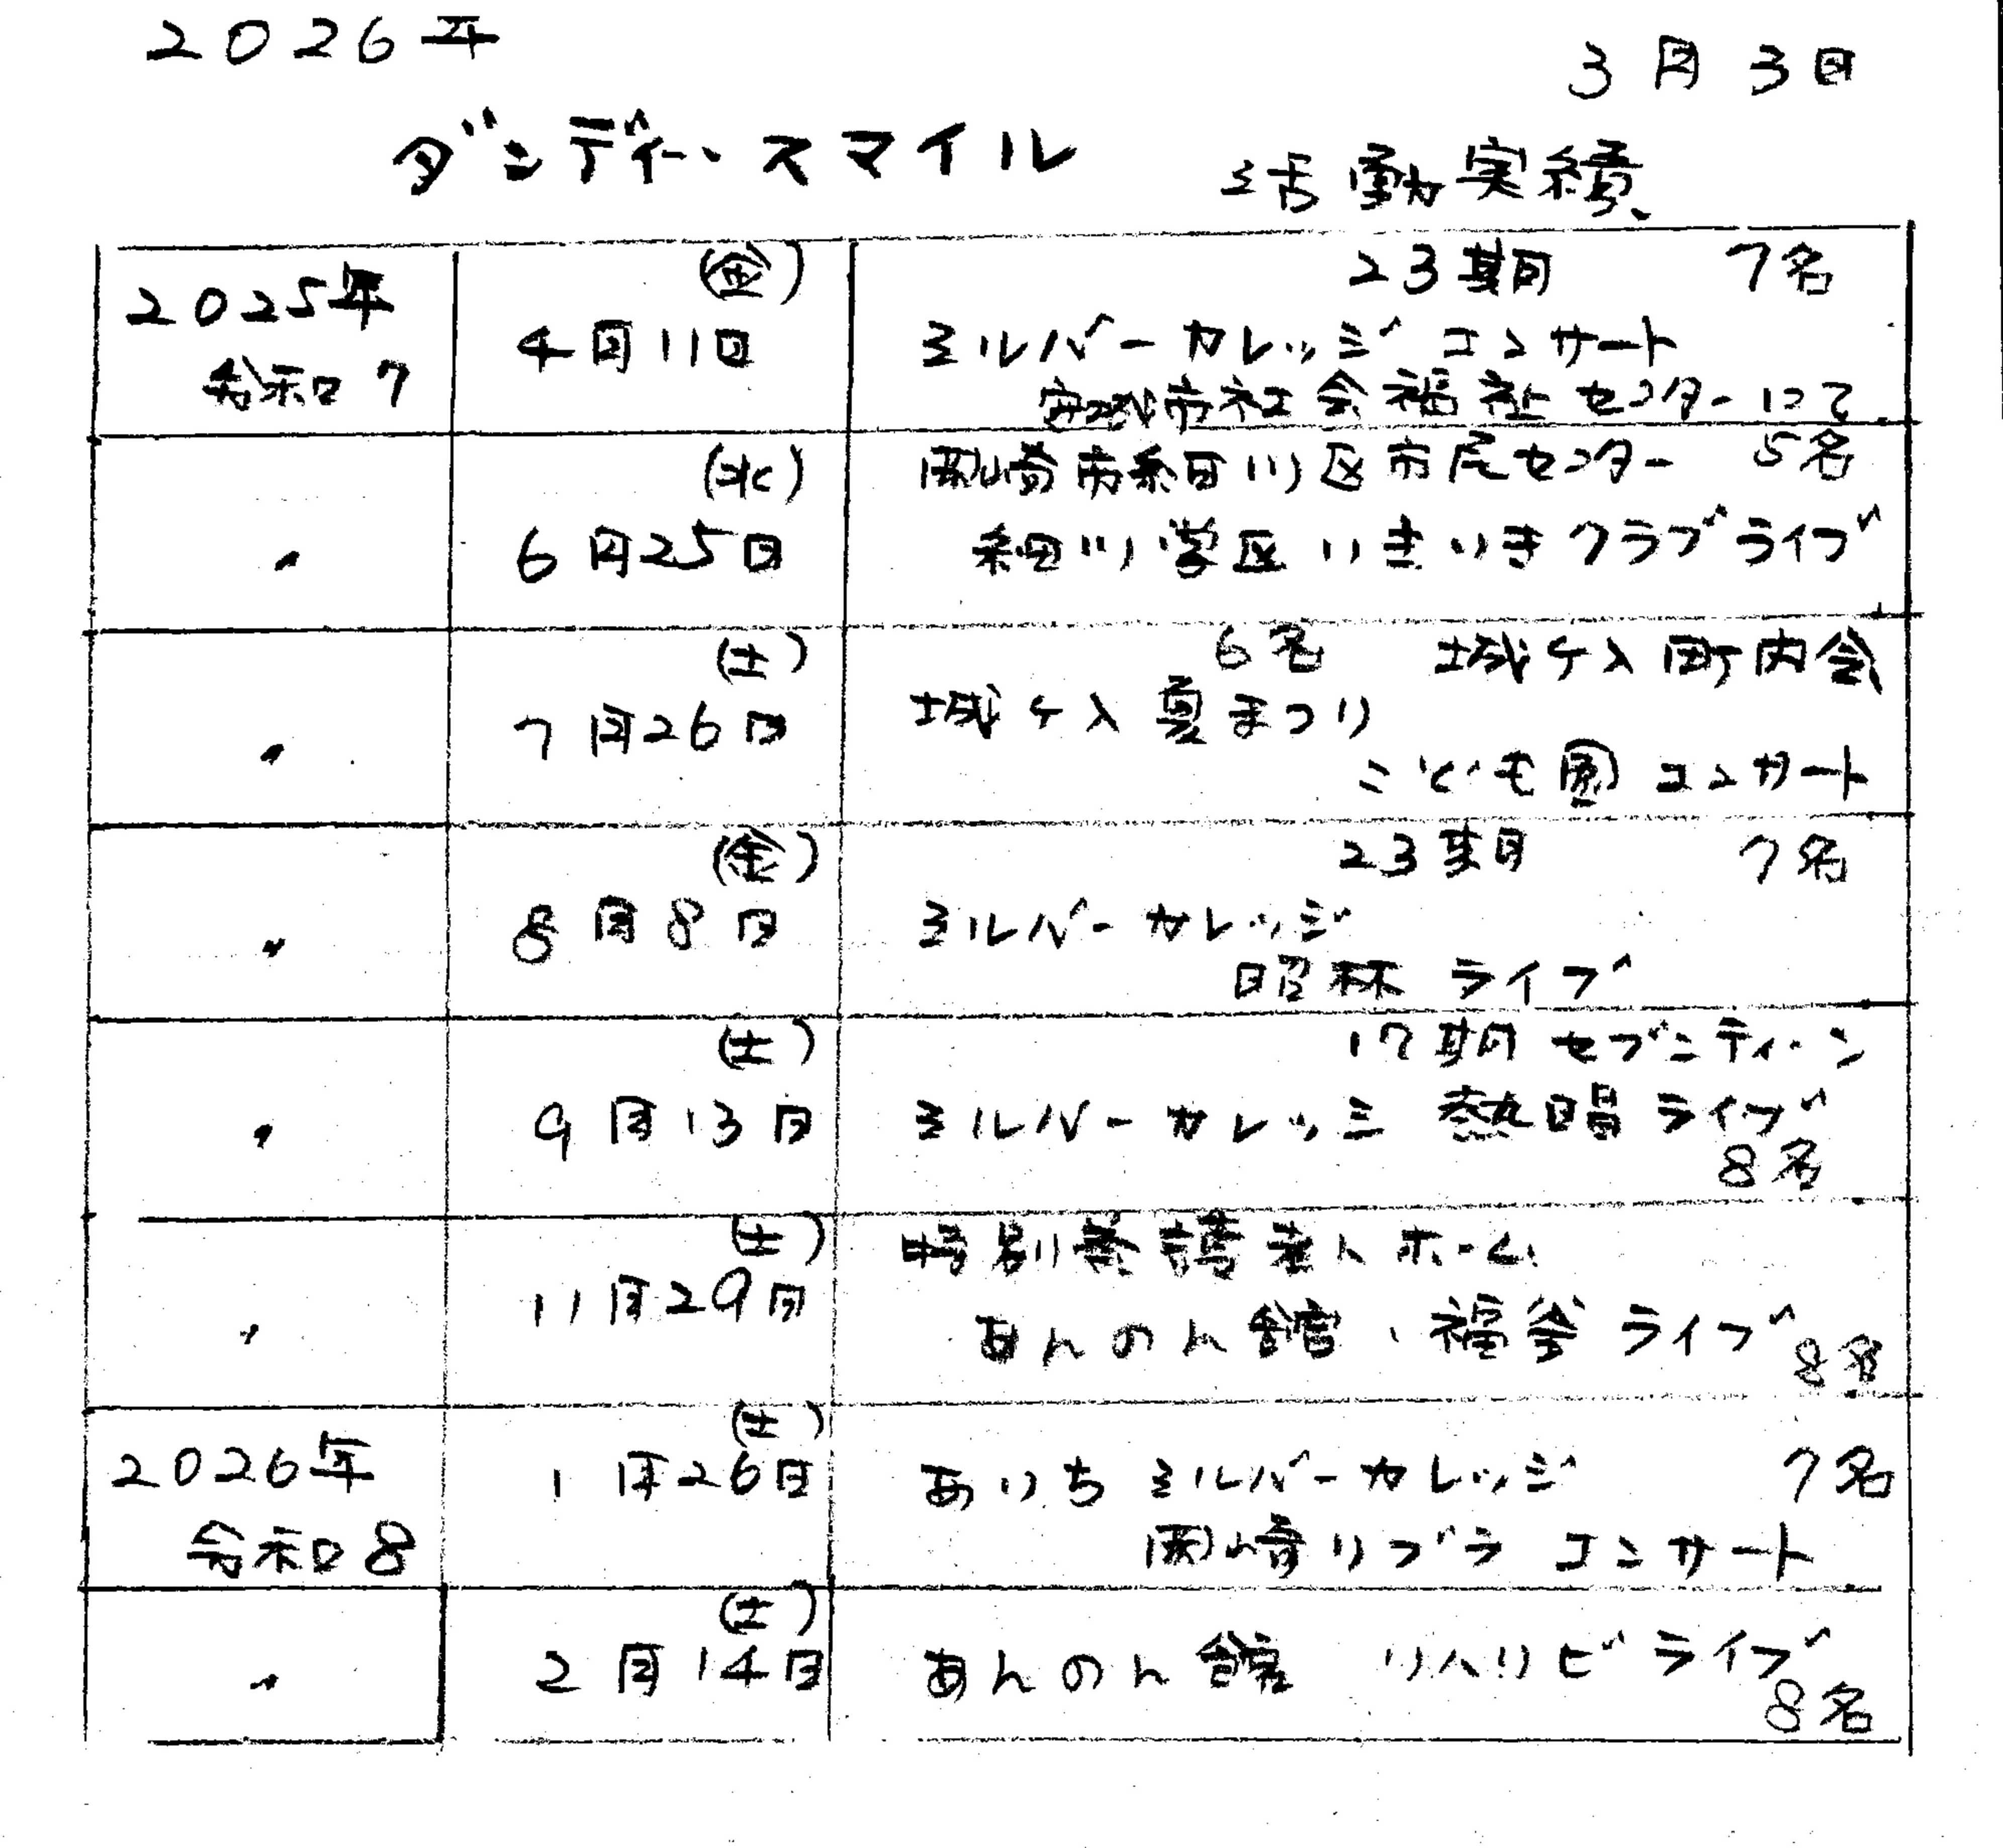 2026年
3月3日
ダンディー・スマイル 活動実績
2025年
令和7
(金)
4月11日
23期 7名
シルバーカレッジ コンサート
安城市社会福祉センターにて
〃
(水)
6月25日
岡崎市細川区市民センター 5名
細川学区いきいきクラブライブ
〃
(土)
7月26日
6名 城ケ入町内会
城ケ入夏まつり
こども園コンサート
〃
(金)
8月8日
23期 7名
シルバーカレッジ
昭林ライブ
〃
(土)
9月13日
17期 セブンティーン
シルバーカレッジ 熱唱ライブ
8名
〃
(土)
11月29日
特別養護老人ホーム
あんのん館・福釜ライブ
8名
2026年
令和8
(土)
1月26日
あいちシルバーカレッジ 7名
岡崎リブラコンサート
〃
(土)
2月14日
あんのん館 リハリビライブ
8名